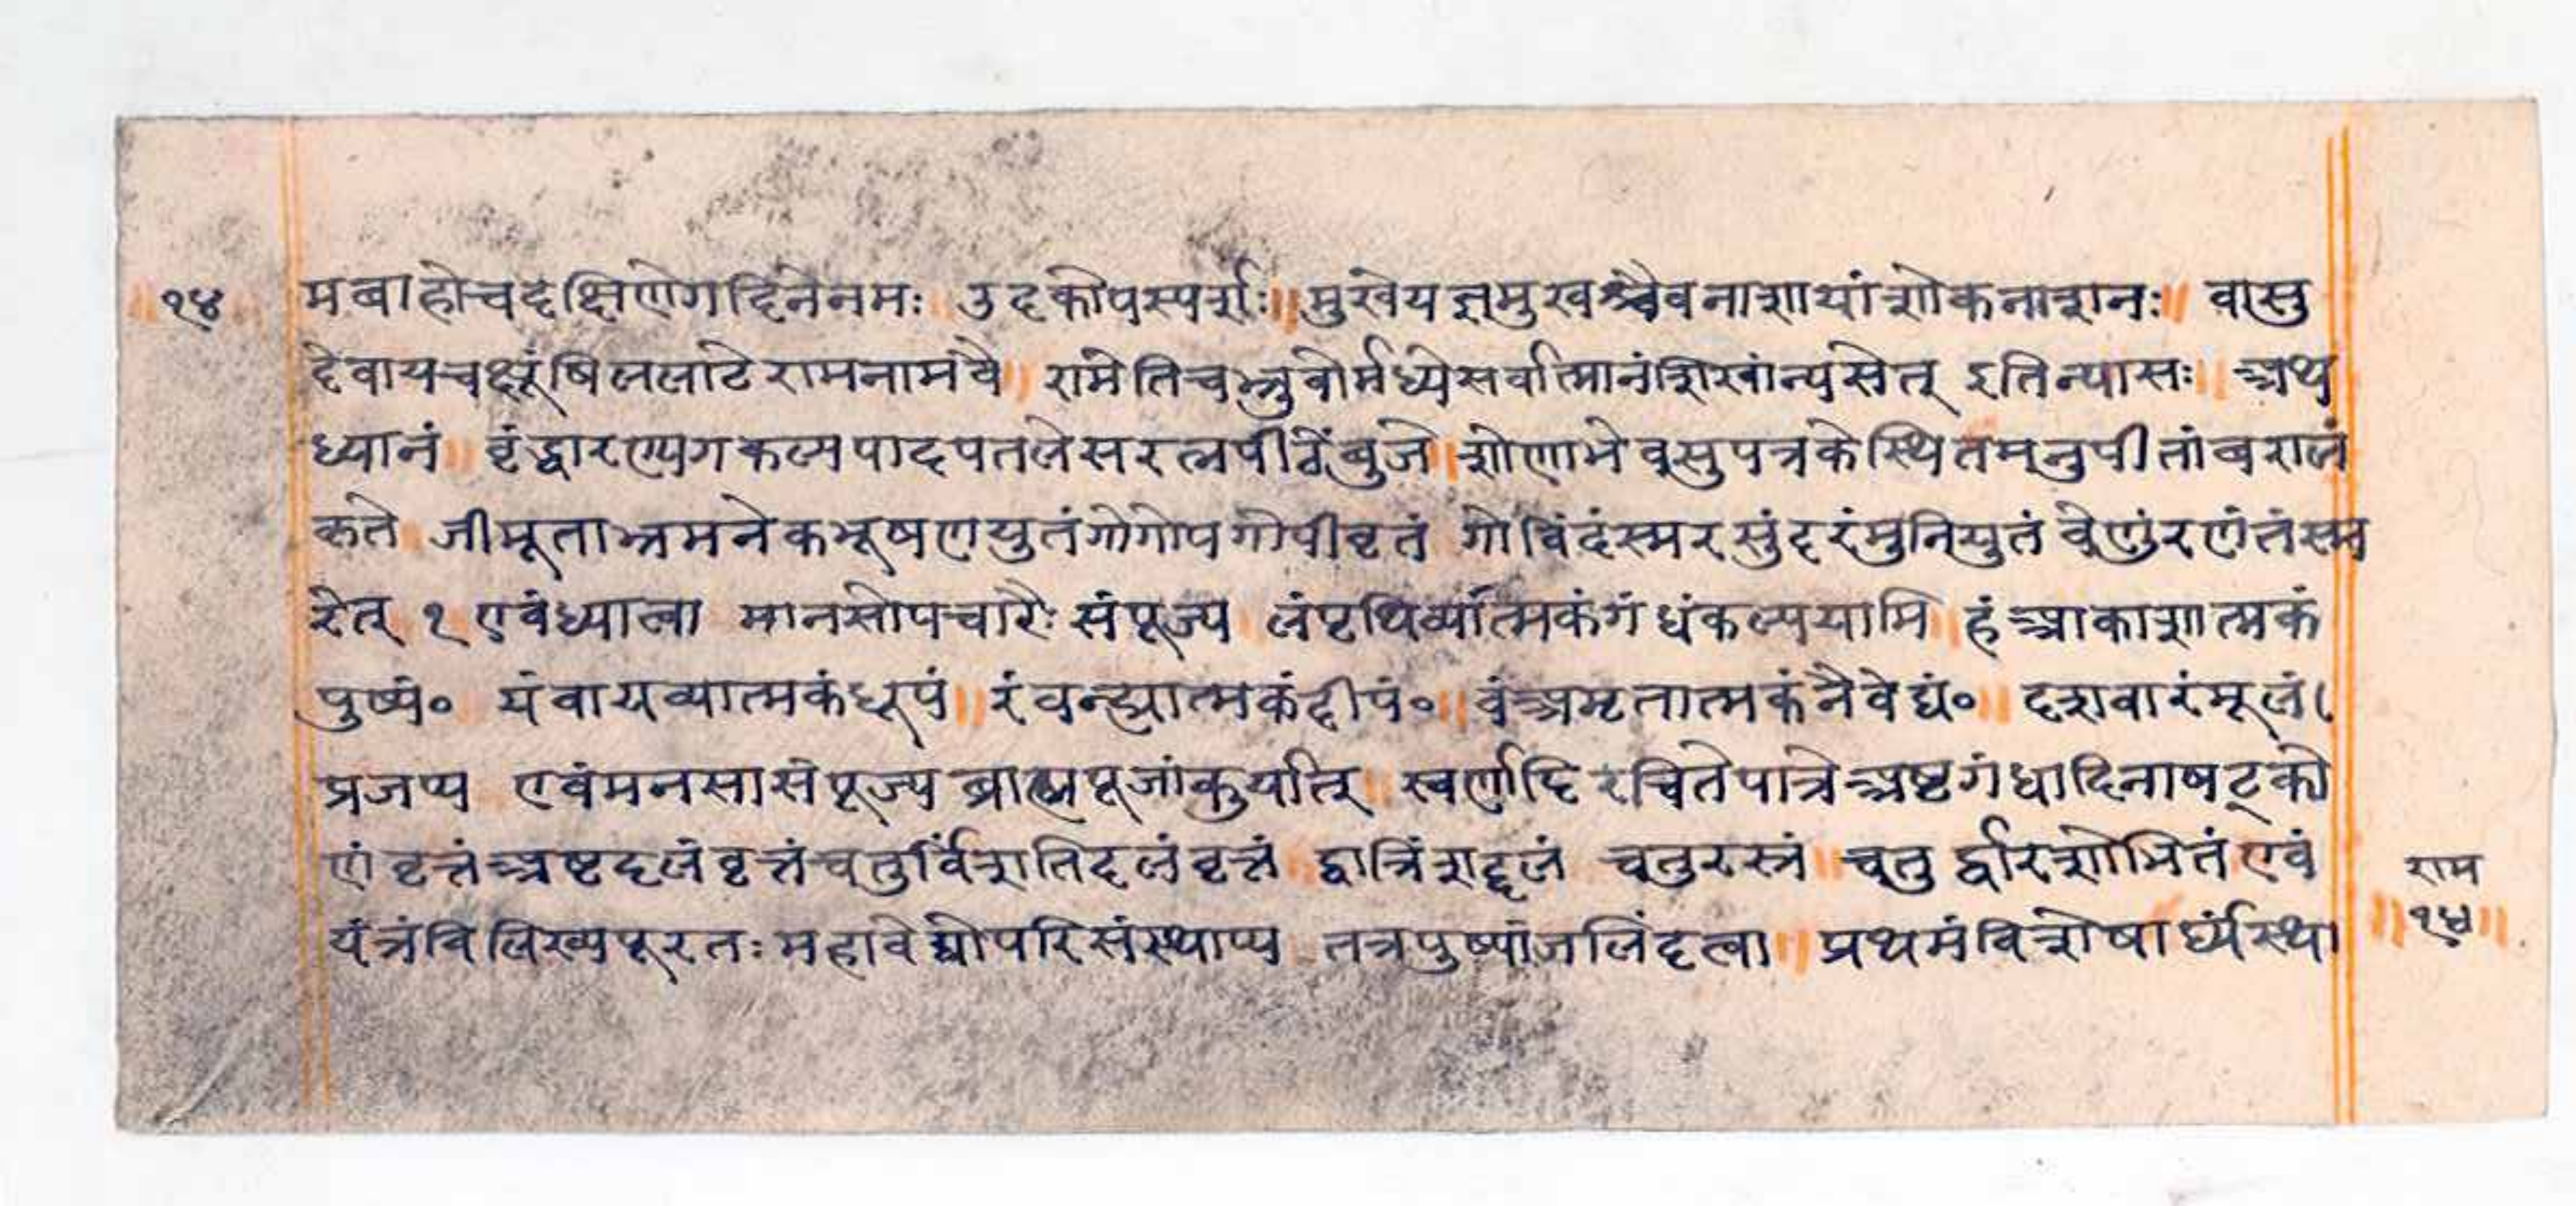 १४
मबाहोचदक्षिणेगदिनेनमः ॥ उदकोपस्पर्शः॥ मुखेयज्ञमुखश्चैवनाशायांशोकनाशनः॥ वासु
देवायचक्षूंषिललाटेरामनामवै ॥ रामेतिचभ्रुवोर्मध्येसर्वात्मानंशिखांन्यसेत् इतिन्यासः॥ अथ
ध्यानं ॥ वृंद्धारण्यगकल्पपादपतलेसरत्नपीठेंबुजे। शोणाभेवसुपत्रकेस्थितमनुपीतांबरालं
कृते जीमूताभ्रमनेकभूषणयुतंगोगोपगोपीवृतं गोविंदंस्मरसुंदरंमुनियुतं वेणुंरणंतंस्म
रेत् १ एवंध्यात्वा मानसोपचारैः संपूज्य लंपृथिव्यात्मकंगंधंकल्पयामि । हंआकाशात्मकं
पुष्पं॰ यंवायव्यात्मकंधूपं॥ रंवन्ह्यात्मकंदीपं॰॥ वंअमृतात्मकंनैवेद्यं॰॥ दशवारंमूलं(
प्रजप्य एवंमनसासंपूज्य ब्राह्मपूजांकुर्यात् ॥ स्वर्णादिरचितेपात्रेअष्टगंधादिनाषट्को
णं वृत्तंअष्टदलंवृत्तंचतुर्विंशतिदलंवृत्तं ॥ द्वात्रिंशद्दलं चतुरस्त्रं ॥ चतुर्द्वारशोभितं एवं
यंत्रंविलिख्यपूरतः महावेद्योपरिसंस्थाप्य तत्रपुष्पांजलिंदत्वा ॥ प्रथमंविशेषार्घ्यंस्था
राम
॥१४॥